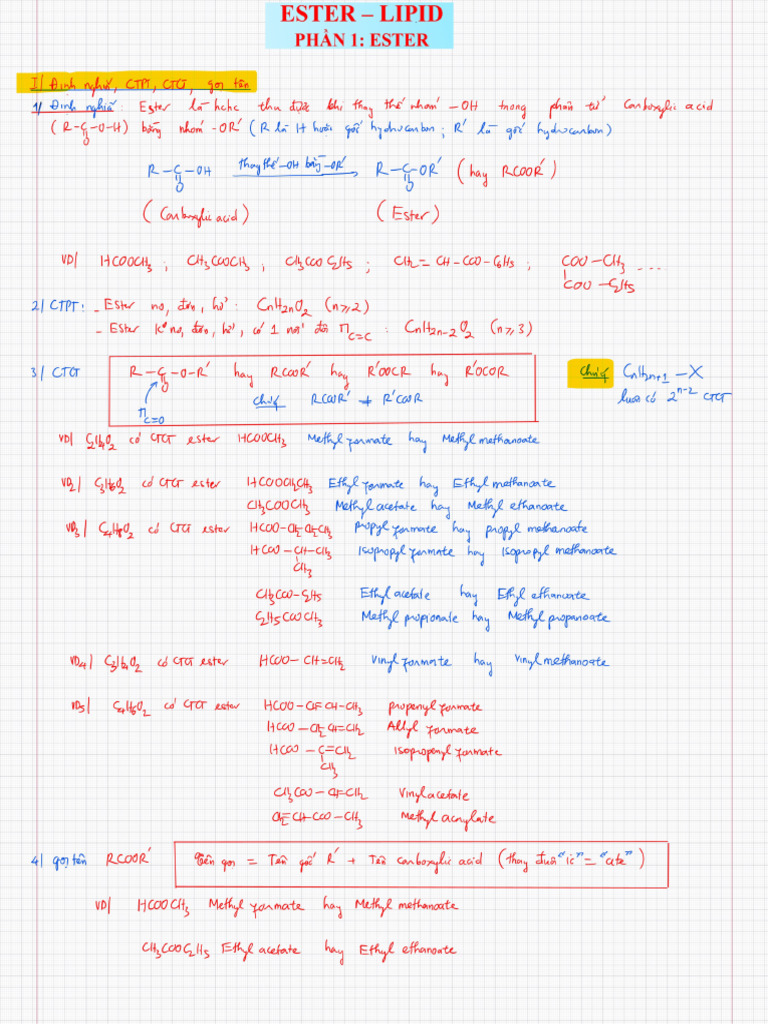 ESTER – LIPID
PHẦN 1: ESTER
I/ Định nghĩa, CTPT, CTCT, gọi tên
1/ Định nghĩa: Ester là hchc thu được khi thay thế nhóm -OH trong phân tử Carboxylic acid
(R-C-O-H) bằng nhóm -OR' (R là H hoặc gốc hydrocarbon; R' là gốc hydrocarbon)
O
R-C-OH thay thế -OH bằng -OR' R-C-OR' (hay RCOOR')
O O
(Carboxylic acid) (Ester)
VD/ HCOOCH3; CH3COOCH3; CH3COOC2H5; CH2=CH-COO-C6H5; COO-CH3 ....
COO-C2H5
2/ CTPT: - Ester no, đơn, hở: CnH2nO2 (n≥2)
- Ester ko no, đơn, hở, có 1 nối đôi πC=C: CnH2n-2O2 (n≥3)
3/ CTCT R-C-O-R' hay RCOOR' hay R'OOCR hay R'OCOR Chú ý CnH2n+1-X
O
πC=O Chú ý RCOOR' ≠ R'COOR luôn có 2^n-2 CTCT
VD/ C2H4O2 có CTCT ester HCOOCH3 Methyl formate hay Methyl methanoate
VD2/ C3H6O2 có CTCT ester HCOOCH2CH3 Ethyl formate hay Ethyl methanoate
CH3COOCH3 Methyl acetate hay Methyl ethanoate
VD3/ C4H8O2 có CTCT ester HCOO-CH2-CH2CH3 propyl formate hay propyl methanoate
HCOO-CH-CH3 Isopropyl formate hay Isopropyl methanoate
CH3
CH3COO-C2H5 Ethyl acetate hay Ethyl ethanoate
C2H5COOCH3 Methyl propionate hay Methyl propanoate
VD4/ C3H4O2 có CTCT ester HCOO-CH=CH2 Vinyl formate hay Vinyl methanoate
VD5/ C4H6O2 có CTCT ester HCOO-CH=CH-CH3 propenyl formate
HCOO-CH2-CH=CH2 Allyl formate
HCOO-C=CH2 isopropenyl formate
CH3
CH3COO-CH=CH2 Vinyl acetate
CH2=CH-COO-CH3 Methyl acrylate
4/ gọi tên RCOOR' Tên gọi = Tên gốc R' + Tên carboxylic acid (thay đuôi "ic" = "ate")
VD/ HCOOCH3 Methyl formate hay Methyl methanoate
CH3COOC2H5 Ethyl acetate hay Ethyl ethanoate